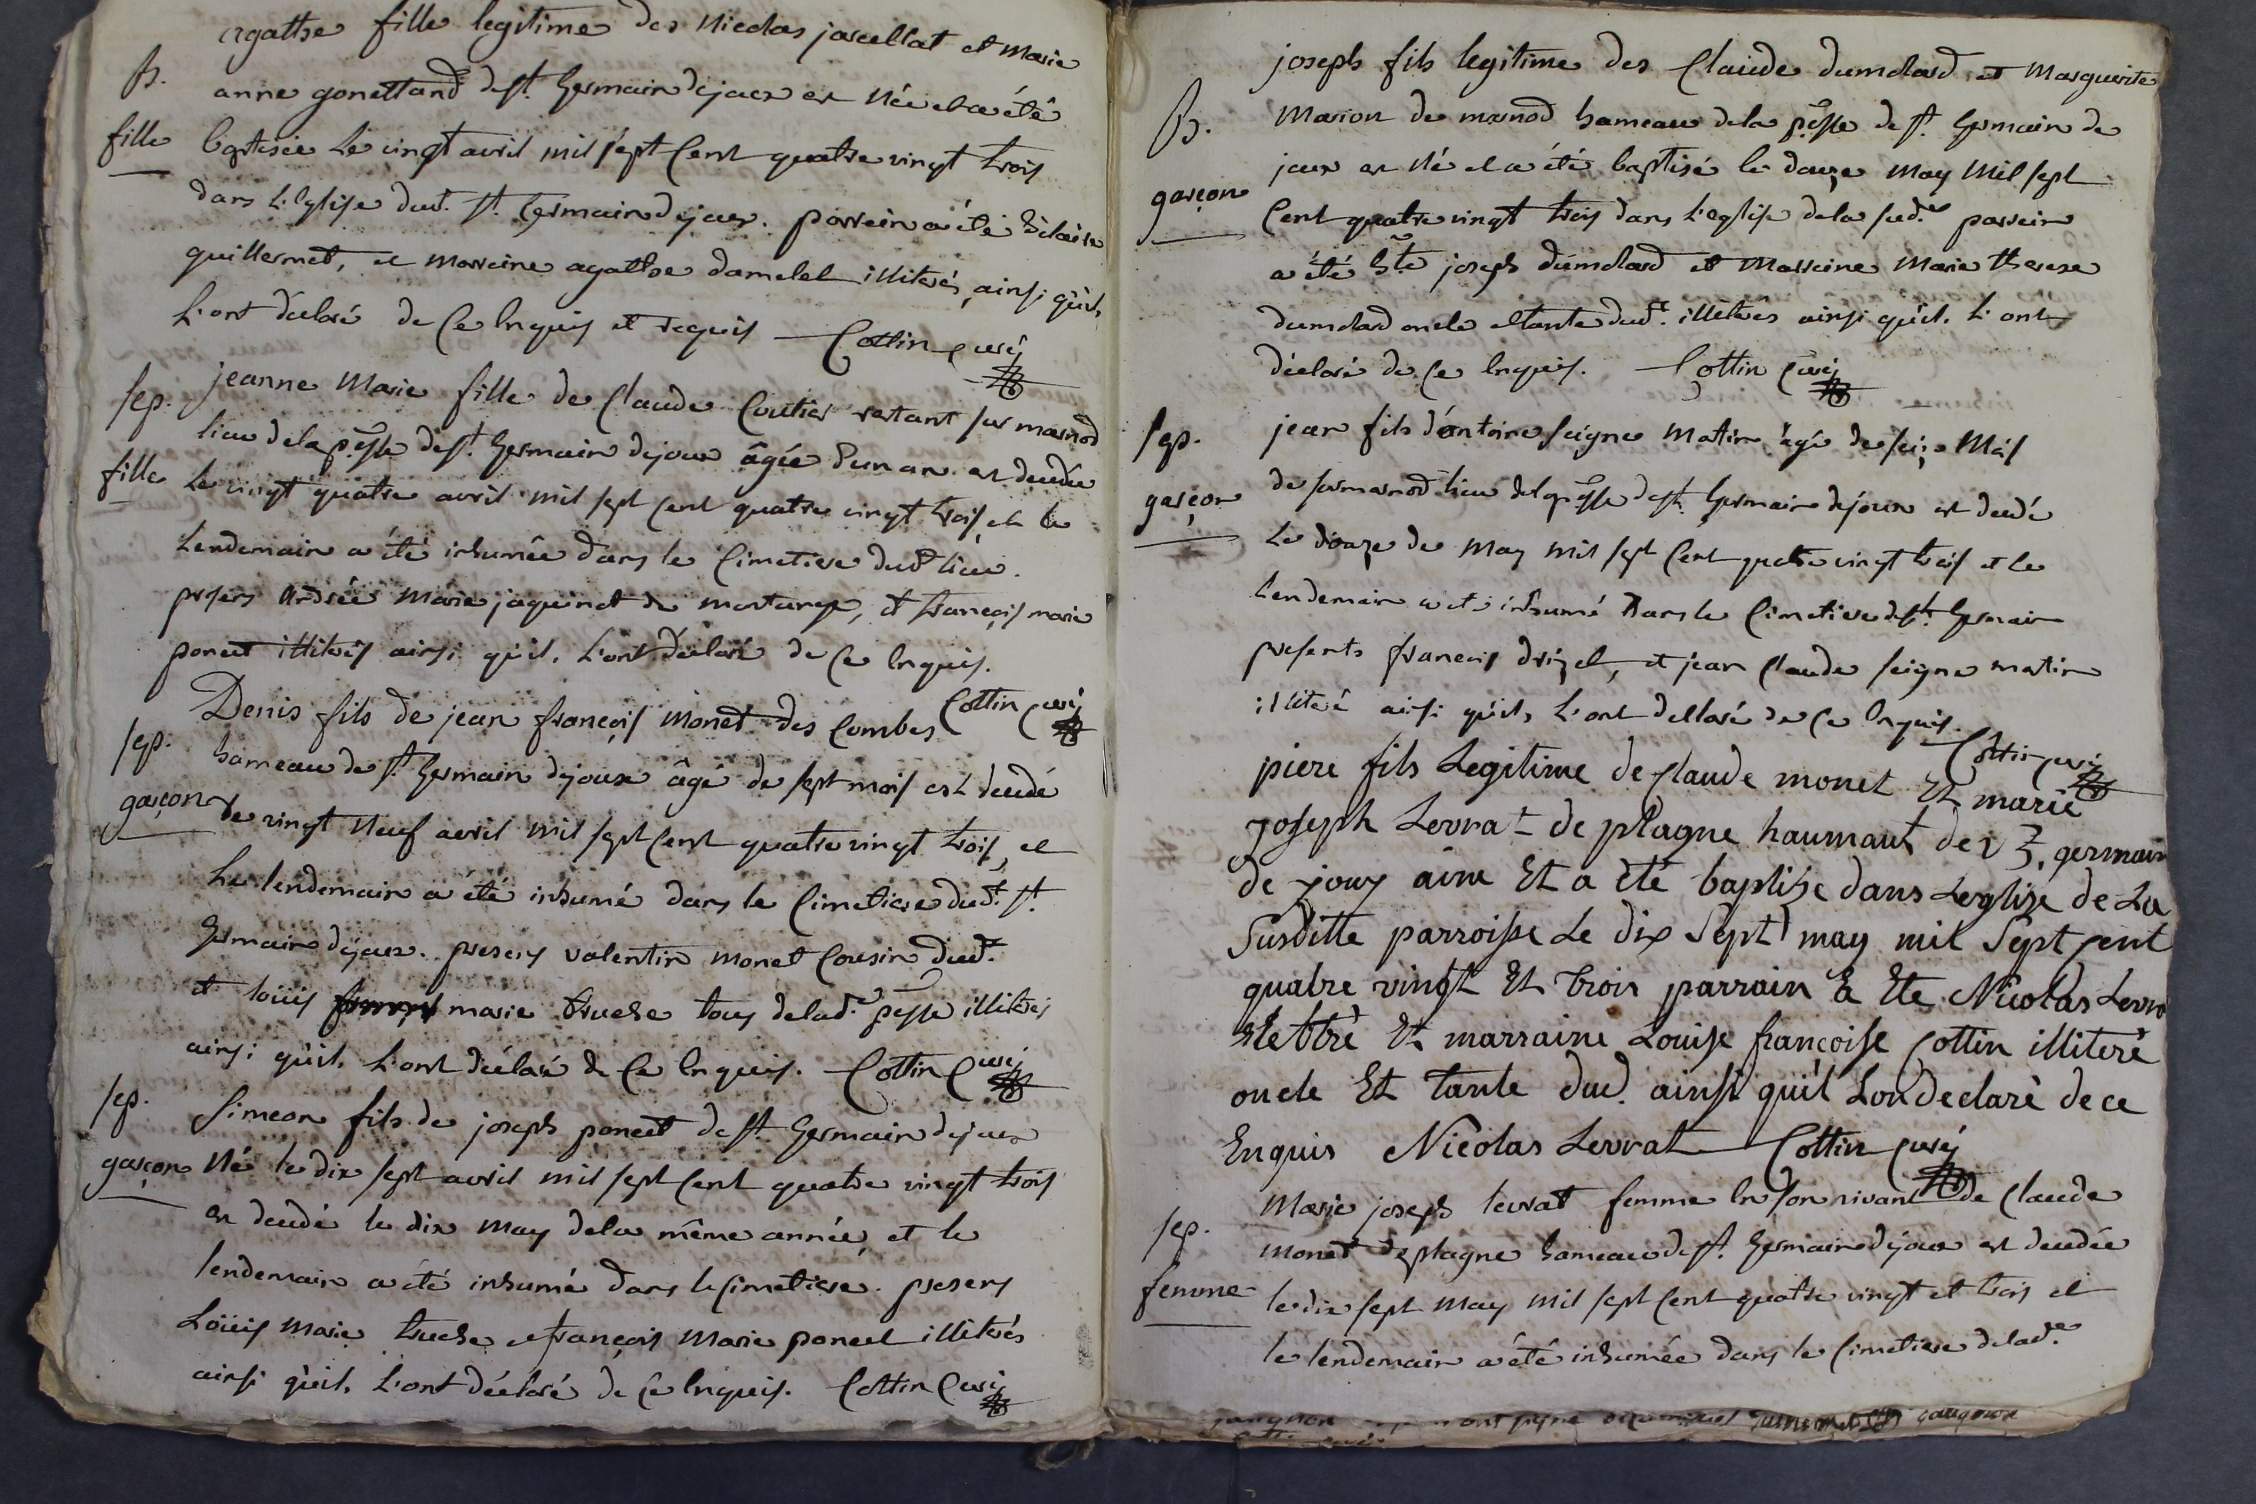 agathe fille legitime des nicolas jacullat et marie
B. anne gonettand de st. germain dejoux est née et a été
fille baptisée le vingt avril mil sept cent quatre vingt trois
dans l'eglise dud. st. germain dejoux. parrein a été hilaire
quillermet, et marreine agathe damelet illiterés, ainsi qu'ils
l'ont déclaré de ce enquis et requis Cottin curé
sep. jeanne marie fille de claude coutier restant sur marnod
lieu dela psse de st. germain dejoux âgée d'un an est decedée
fille le vingt quatre avril mil sept cent quatre vingt trois, et le
lendemain a été inhumée dans le cimetiere dud lieu.
presens andrée marie jaquinot de montange, et françois marie
poncet illiterés ainsi qu'il. l'ont déclaré de ce enquis.
Cottin curé
Denis fils de jean françois monet des combes
sep. hameau de st. germain dejoux âgé de sept mois est decedé
garçon le vingt neuf avril mil sept cent quatre vingt trois, et
le lendemain a été inhumé dans le cimetiere dud. st.
germain dejoux. presens valentin monet cousin dud.
et loüis marie truche tous delad.e psse illiterés
ainsi qu'il. l'ont déclaré de ce enquis. Cottin curé
sep. Simeon fils de joseph poncet de st. germain dejoux
garçon né le dix sept avril mil sept cent quatre vingt trois
est decedé le dix may dela même année, et le
lendemain a été inhumé dans le cimetiere. presens
Loüis marie truche et françois marie poncet illiterés
ainsi qu'il. l'ont déclaré de ce enquis. Cottin curé
joseph fils legitime des claude dumolard et marguerite
B. marion de marnod hameau dela psse de st. germain de
joux est né et a été baptisé le douze may mil sept
garçon cent quatre vingt trois dans l'eglise dela sud.e parrein
a été hte joseph dumolard et marreine marie therese
dumolard oncle et tante dud. illiterés ainsi qu'il. l'ont
déclaré de ce enquis. Cottin curé
sep. jean fils d'antoine seigne matin âgé de seize mois
garçon de sur marnod lieu dela psse de st. germain dejoux est decedé
le douze de may mil sept cent quatre vingt trois et le
lendemain a été inhumé dans le cimetiere de st. germain
presents françois drizet, et jean claude seigne matin
illiteré ainsi qu'ils l'ont dellaré de ce enquis.
Cottin curé
piere fils Legitime de claude monet Et marie
joseph Levrat de plagne haumaut de germain
de jouy aine Et a été baptise dans Leglise de La
Susditte parroisse Le dix Sept may mil Sept cent
quatre vingt Et trois parrain a Ete Nicolas Levra
Lettrè Et marraine Louise françoise Cottin illiterè
oncle Et tante dud. ainsi quil Lon declarè de ce
Enquis Nicolas Levrat Cottin curé
Marie joseph levrat femme en son vivant de claude
sep. monet de plagne hameau de st. germain dejoux est decedée
femme le dix sept may mil sept cent quatre vingt et trois et
le lendemain a été inhumée dans le cimetiere delad.e